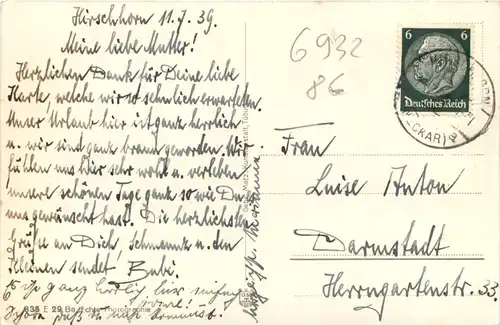 Hirschhorn 11.7.39.
Meine liebe Mutter!
Herzlichen Dank für Deine liebe
Karte, welche wir so sehnlich erwarteten.
Unser Urlaub hier ist ganz herrlich
u. wir sind ganz braun geworden. Wir
fühlen uns hier sehr wohl u. verleben
unsere schönen Tage ganz so wie Du es
uns gewünscht hast. Die herzlichsten
Grüße an Dich, u. den
Kleinen sendet Babi.
ganz für
Schon daß Du
835 E 29
6932
86
6
Deutsches Reich
Frau
Luise Anton
Darmstadt
Herrngartenstr. 33